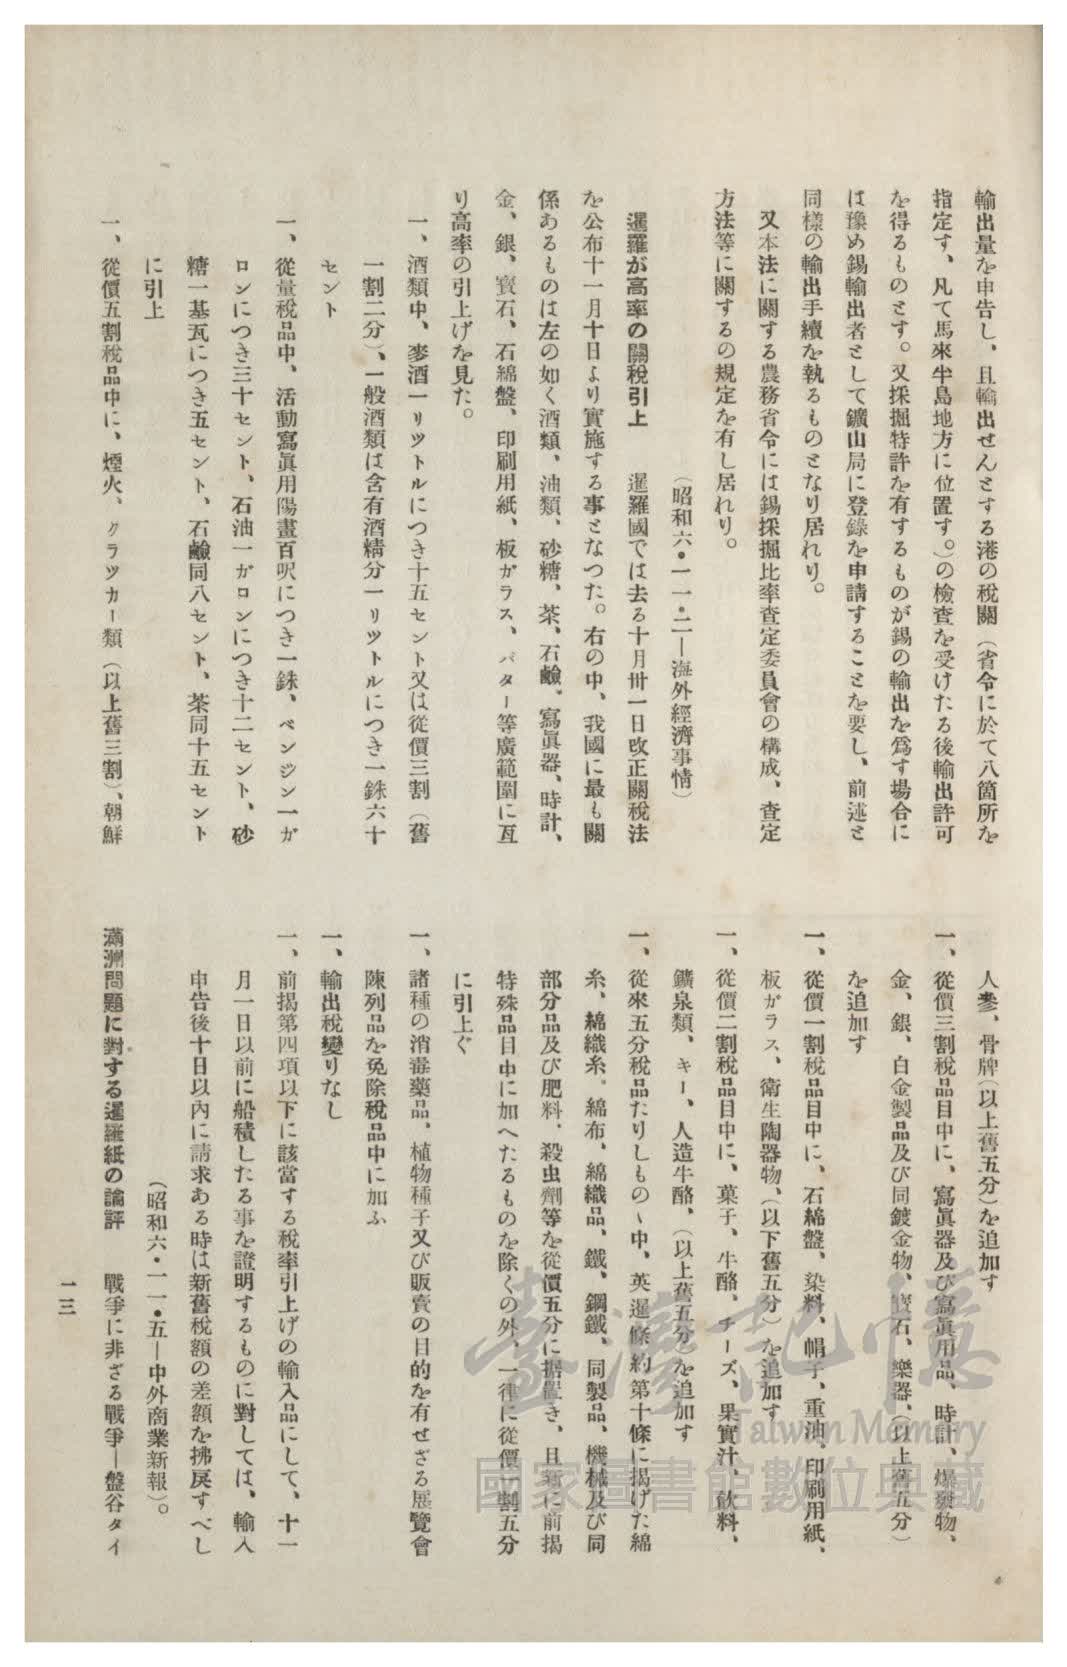 輸出量を申告し、且輸出せんとする港の稅關（省令に於て八箇所を
指定す、凡て馬來半島地方に位置す。）の檢査を受けたる後輸出許可
を得るものとす。又採掘特許を有するものが錫の輸出を爲す場合に
は豫め錫輸出者として鑛山局に登錄を申請することを要し、前述と
同樣の輸出手續を執るものとなり居れり。
又本法に關する農務省令には錫採掘比率査定委員會の構成、査定
方法等に關するの規定を有し居れり。
（昭和六・一一・二―海外經濟事情）
暹羅が高率の關稅引上　暹羅國では去る十月卅一日改正關稅法
を公布十一月十日より實施する事となつた。右の中、我國に最も關
係あるものは左の如く酒類、油類、砂糖、茶、石鹼、寫眞器、時計、
金、銀、寶石、石綿盤、印刷用紙、板ガラス、バター等廣範圍に亙
り高率の引上げを見た。
一、酒類中、麥酒一リツトルにつき十五セント又は從價三割（舊
一割二分）、一般酒類は含有酒精分一リツトルにつき一銖六十
セント
一、從量稅品中、活動寫眞用陽畫百呎につき一銖、ベンジン一ガ
ロンにつき三十セント、石油一ガロンにつき十二セント、砂
糖一基瓦につき五セント、石鹼同八セント、茶同十五セント
に引上
一、從價五割稅品中に、煙火、クラツカー類（以上舊三割）、朝鮮
人參、骨牌（以上舊五分）を追加す
一、從價三割稅品目中に、寫眞器及び寫眞用品、時計、爆發物、
金、銀、白金製品及び同鍍金物、寶石、樂器、（以上舊五分）
を追加す
一、從價一割稅品目中に、石綿盤、染料、帽子、重油、印刷用紙、
板ガラス、衛生陶器物、（以下舊五分）を追加す
一、從價二割稅品目中に、菓子、牛酪、チーズ、果實汁、飮料、
鑛泉類、キー、人造牛酪、（以上舊五分）を追加す
一、從來五分稅品たりしもの〻中、英暹條約第十條に揭げた綿
糸、綿織糸。綿布、綿織品、鐵、鋼鐵、同製品、機械及び同
部分品及び肥料、殺虫劑等を從價五分に据置き、且新に前揭
特殊品目中に加へたるものを除くの外、一律に從價一割五分
に引上ぐ
一、諸種の消毒藥品、植物種子又び販賣の目的を有せざる展覽會
陳列品を免除稅品中に加ふ
一、輸出稅變りなし
一、前揭第四項以下に該當する稅率引上げの輸入品にして、十一
月一日以前に船積したる事を證明するものに對しては、輸入
申告後十日以內に請求ある時は新舊稅額の差額を拂戾すべし
（昭和六・一一・五―中外商業新報）。
滿洲問題に對する暹羅紙の論評　戰爭に非ざる戰爭―盤谷タイ
一三
臺灣記憶
Taiwan Memory
國家圖書館數位典藏